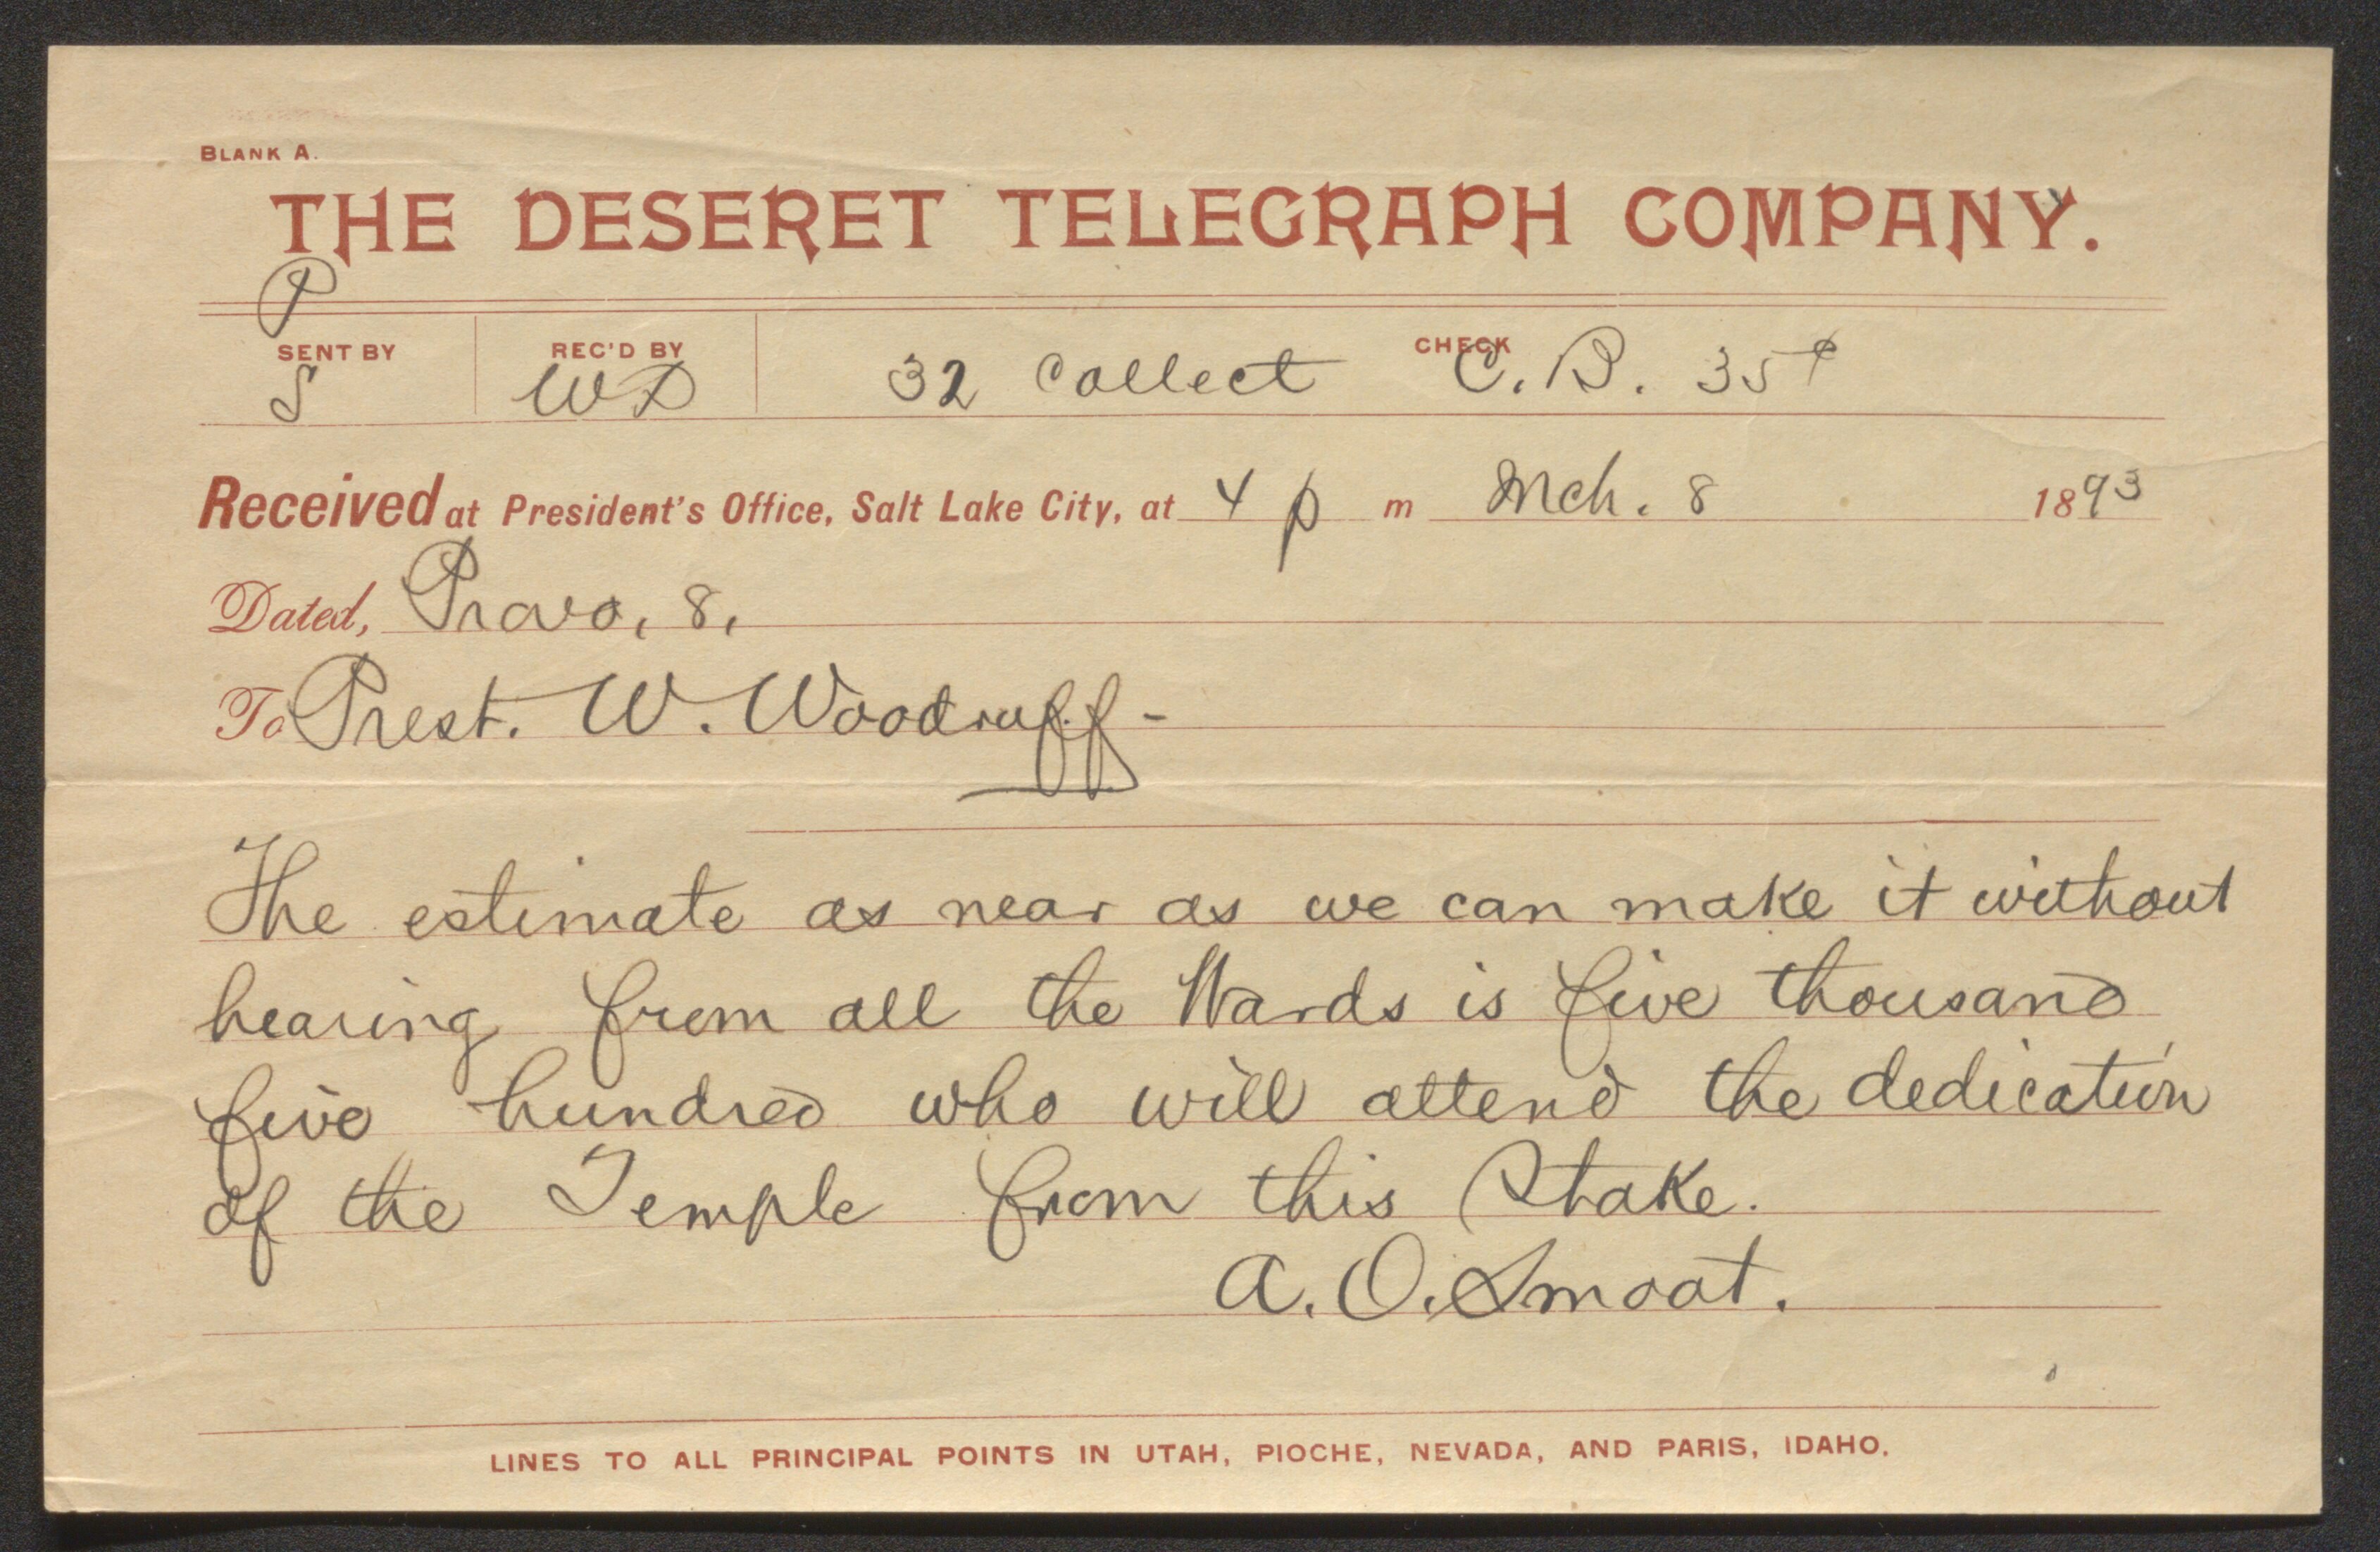 BLANK A.
THE DESERET TELEGRAPH COMPANY.
P
SENT BY REC'D BY CHECK
S WD 32 Collect C. B. 35¢
Received at President's Office, Salt Lake City, at 4 p m Mch. 8 1893
Dated, Provo, 8,
To Prest. W. Woodruff-
The estimate as near as we can make it without
hearing from all the Wards is five thousand
five hundred who will attend the dedication
of the Temple from this Stake.
A. O. Smoot.
LINES TO ALL PRINCIPAL POINTS IN UTAH, PIOCHE, NEVADA, AND PARIS, IDAHO.